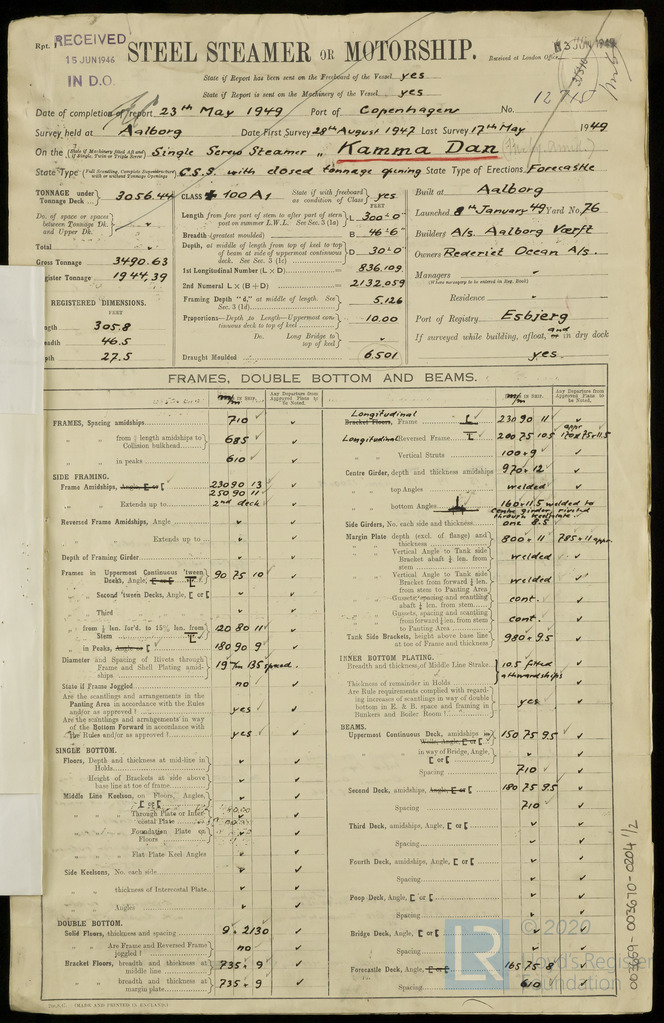 Rpt. 1
RECEIVED
15 JUN 1946
IN D.O.
STEEL STEAMER OR MOTORSHIP.
Received at London Office
3 JUN 1949
State if Report has been sent on the Freeboard of the Vessel yes
State if Report is sent on the Machinery of the Vessel yes
Date of completion of report 23th May 1949 Port of Copenhagen No.
Survey held at Aalborg Date First Survey 20th August 1947 Last Survey 17th May 1949
On the (State if Machinery fitted Aft and if Single, Twin or Triple Screw) Single Screw Steamer " Kamma Dan
State Type C.S.S. with closed tonnage opening State Type of Erections Forecastle
TONNAGE under Tonnage Deck 3056.44
Do. of space or spaces between Tonnage Dk. and Upper Dk.
Total
Gross Tonnage 3490.63
Register Tonnage 1944.39
REGISTERED DIMENSIONS.
FEET
305.8
46.5
27.5
CLASS 100 A1 State if with freeboard as condition of Class yes
FEET
Length from fore part of stem to after part of stern post on summer L.W.L. See Sec. 3 (1a) L 300'-0"
Breadth (greatest moulded) B 46'-6"
Depth, at middle of length from top of keel to top of beam at side of uppermost continuous deck. See Sec. 3 (1c) D 30'-0"
1st Longitudinal Number (L × D) = 836.109
2nd Numeral L × (B + D) = 2132.059
Framing Depth "d," at middle of length. See Sec. 3 (1d) 5.126
Proportions—Depth to Length—Uppermost continuous deck to top of keel 10.00
Do. Long Bridge to top of keel
Draught Moulded 6.501
Built at Aalborg
Launched 8th January 49 Yard No. 76
Builders A/s. Aalborg Værft
Owners Rederiet Ocean A/s.
Managers
(Where necessary to be entered in Reg. Book)
Residence
Port of Registry Esbjerg
If surveyed while building, afloat, or and in dry dock
yes.
FRAMES, DOUBLE BOTTOM AND BEAMS.
IN SHIP. Any Departure from Approved Plans to be Noted.
IN SHIP. Any Departure from Approved Plans to be Noted.
FRAMES, Spacing amidships 710
" from ⅕ length amidships to Collision bulkhead 685
" in peaks 610
SIDE FRAMING.
Frame Amidships, Angle, [ or [ 230 90 13
250 90 11
" Extends up to 2nd deck
Reversed Frame Amidships, Angle
" Extends up to
Depth of Framing Girder
Frames in Uppermost Continuous 'tween Decks, Angle, [ or [ 90 75 10
" Second 'tween Decks, Angle, [ or [
" Third
" from ⅕ len. for'd. to 15% len. from Stem 120 80 11
" in Peaks, Angle or [ 180 90 9
Diameter and Spacing of Rivets through Frame and Shell Plating amidships 19 m/m 135 spaced.
State if Frame Joggled no
Are the scantlings and arrangements in the Panting Area in accordance with the Rules and/or as approved? yes
Are the scantlings and arrangements in way of the Bottom Forward in accordance with the Rules and/or as approved? yes
SINGLE BOTTOM.
Floors, Depth and thickness at mid-line in Holds
Height of Brackets at side above base line at toe of frame
Middle Line Keelson, on Floors, Angles, [ or [
" Through Plate or Intercostal Plate
" Foundation Plate on Floors
" Flat Plate Keel Angles
Side Keelsons, No. each side
" thickness of Intercostal Plate
" Angles
DOUBLE BOTTOM.
Solid Floors, thickness and spacing 9 × 2130
" Are Frame and Reversed Frame joggled? no
Bracket Floors, breadth and thickness at middle line 735 × 9
" breadth and thickness at margin plate 735 × 9
Longitudinal
Bracket Floors, Frame 230 90 11
Longitudinal Reversed Frame 200 75 10.5 appr 170x75x11.5
" Vertical Struts 100 × 9
Centre Girder, depth and thickness amidships 970 × 12
" top Angles welded
" bottom Angles 160 × 11.5 welded to centre girder, riveted through keelplate
Side Girders, No. each side and thickness one 8.5
Margin Plate depth (excl. of flange) and thickness 800 × 11 785 × 11 appr.
" Vertical Angle to Tank side Bracket abaft ¼ len. from stem welded
" Vertical Angle to Tank side Bracket from forward ¼ len. from stem to Panting Area welded
" Gussets, spacing and scantling abaft ¼ len. from stem cont.
" Gussets, spacing and scantling from forward ¼ len. from stem to Panting Area cont.
Tank Side Brackets, height above base line at toe of Frame and thickness 980 × 9.5
INNER BOTTOM PLATING.
Breadth and thickness of Middle Line Strake 10.5 fitted athwardships
Thickness of remainder in Holds
Are Rule requirements complied with regarding increases of scantlings in way of double bottom in E. & B. space and framing in Bunkers and Boiler Room? yes
BEAMS.
Uppermost Continuous Deck, amidships 150 75 9.5
" in way of Bridge, Angle, [ or [
" Spacing 710
Second Deck, amidships, Angle, [ or [ 180 75 9.5
" Spacing 710
Third Deck, amidships, Angle, [ or [
" Spacing
Fourth Deck, amidships, Angle, [ or [
" Spacing
Poop Deck, Angle, [ or [
" Spacing
Bridge Deck, Angle, [ or [
" Spacing
Forecastle Deck, Angle, [ or [ 165 75 8
" Spacing 610
(MADE AND PRINTED IN ENGLAND.)
003659-003670-0204 1/2
LR
© 2020
Lloyd's Register
Foundation